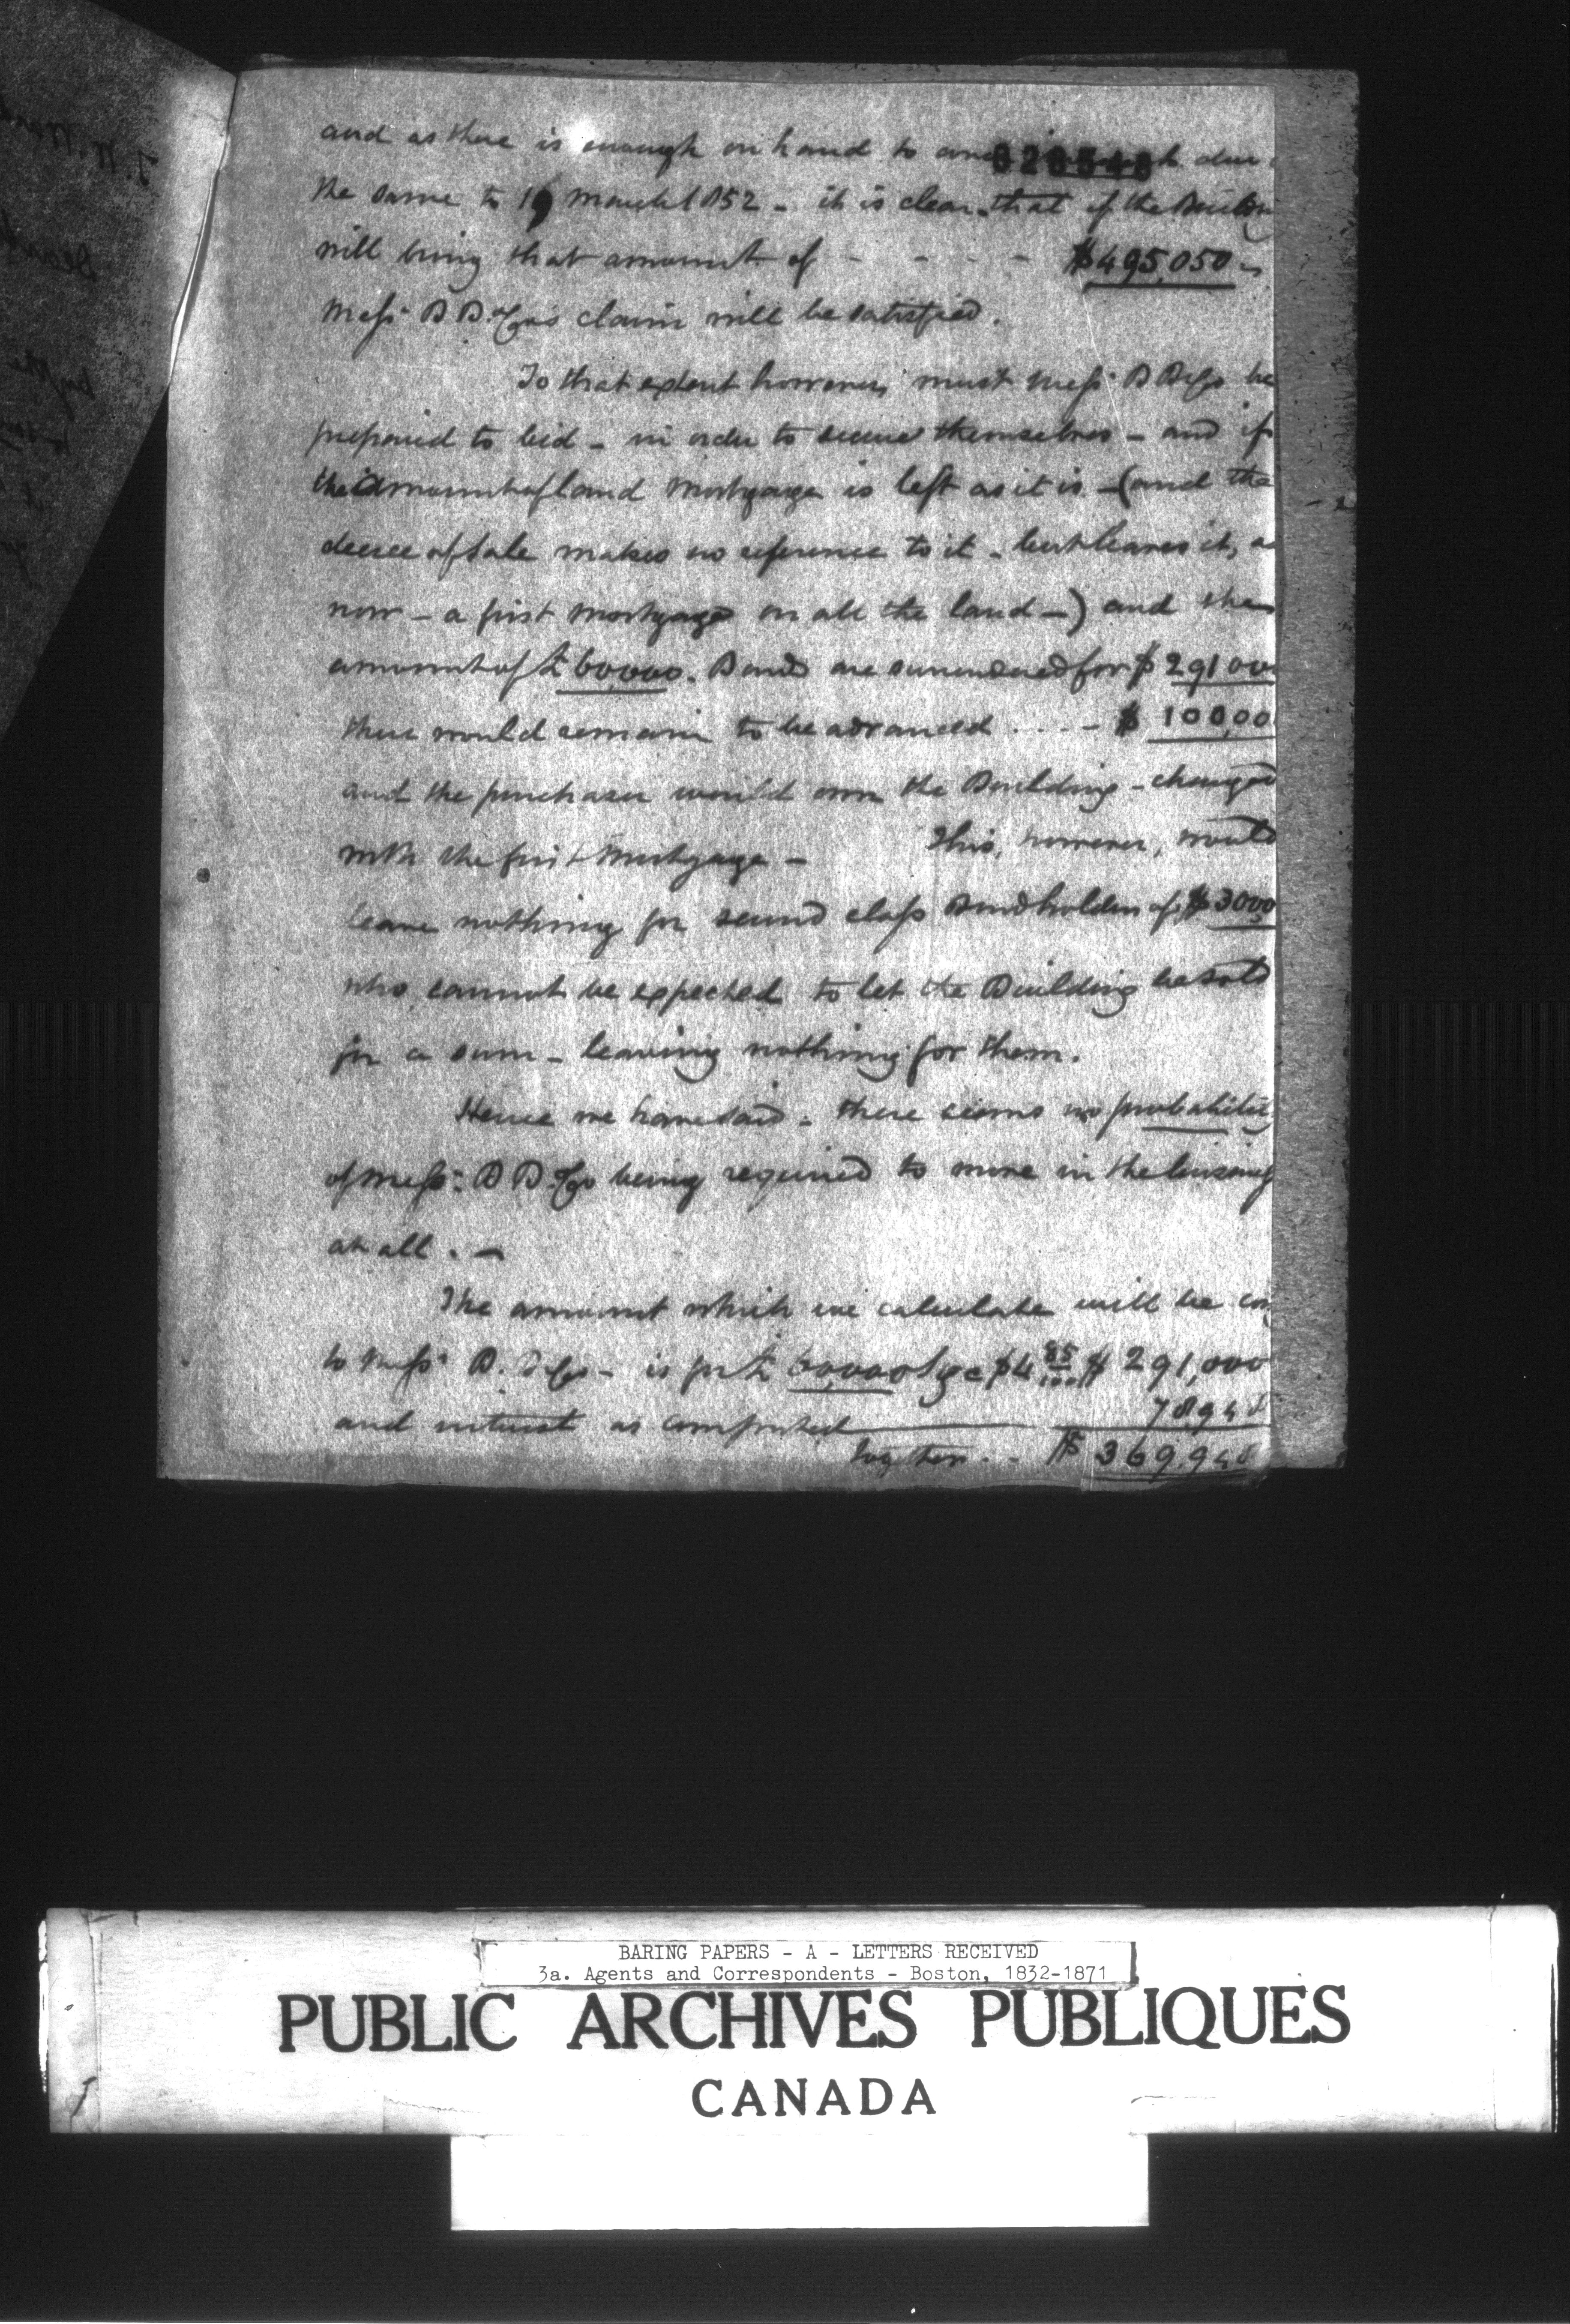 and as there is enough on hand to
the same to 19 March 1852 - it is clear that if the Building
will bring that amount of - - - - $495,050 -
Messrs B B & Co's claim will be satisfied.
To that extent however, must Messrs B B & Co be
prepared to bid - in order to secure themselves - and if
the amount of land Mortgage is left as it is - (and the
decree of sale makes no reference to it - but leaves it, as
now - a first Mortgage on all the land -) and the
amount of £60,000. Bonds are surrendered for $ 291 00
there would remain to be advanced .... - $ 100,00
and the purchaser would own the Building - charged
with the first Mortgage - This, however, would
leave nothing for second class Bondholders of $3000
who cannot be expected to let the Building be sold
for a sum - leaving nothing for them.
Hence we have said - there seems no probability
of Messrs: B B & Co being required to move in the business
at all. -
The amount which we calculate will be
to Messrs B. B & Co - is for £ 60,000 stg @ $4 85/100 $ 291,000
and interest as computed 78948
together - - $ 369,948
BARING PAPERS - A - LETTERS RECEIVED
3a. Agents and Correspondents - Boston, 1832-1871
PUBLIC ARCHIVES PUBLIQUES
CANADA